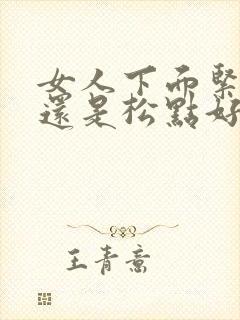 女人下面緊
還是松點好
王青意